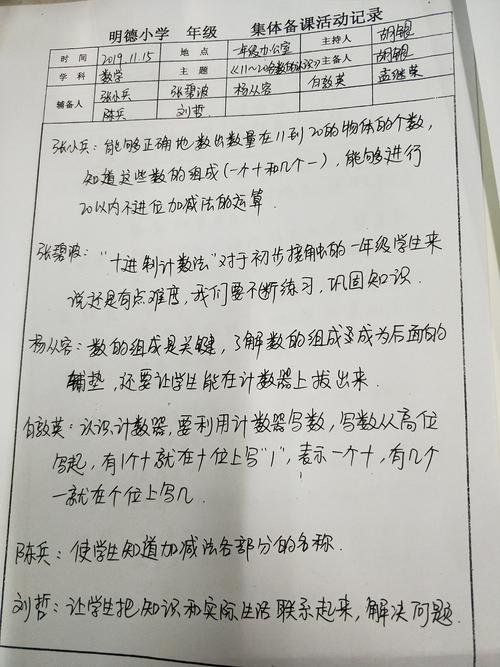 明德小学 年级 集体备课活动记录
时间 2019.11.15 地点 一年级办公室 主持人 胡银
学科 数学 主题 《11～20各数的认识》 主备人 胡银
辅备人 张小兵 张碧波 杨从容 白敦英 孟继荣
陈兵 刘哲
张小兵：能够正确地数出数量在11到20的物体的个数，
知道这些数的组成（一个十和几个一），能够进行
20以内不进位加减法的运算．
张碧波："十进制计数法"对于初步接触的一年级学生来
说还是有点难度，我们要不断练习，巩固知识．
杨从容：数的组成是关键，了解数的组成是成为后面的
辅垫，还要让学生能在计数器上拨出来．
白敦英：认识计数器，要利用计数器写数，写数从高位
写起，有1个十就在十位上写"1"，表示一个十，有几个
一就在个位上写几．
陈兵：使学生知道加减法各部分的名称．
刘哲：让学生把知识和实际生活联系起来，解决问题．